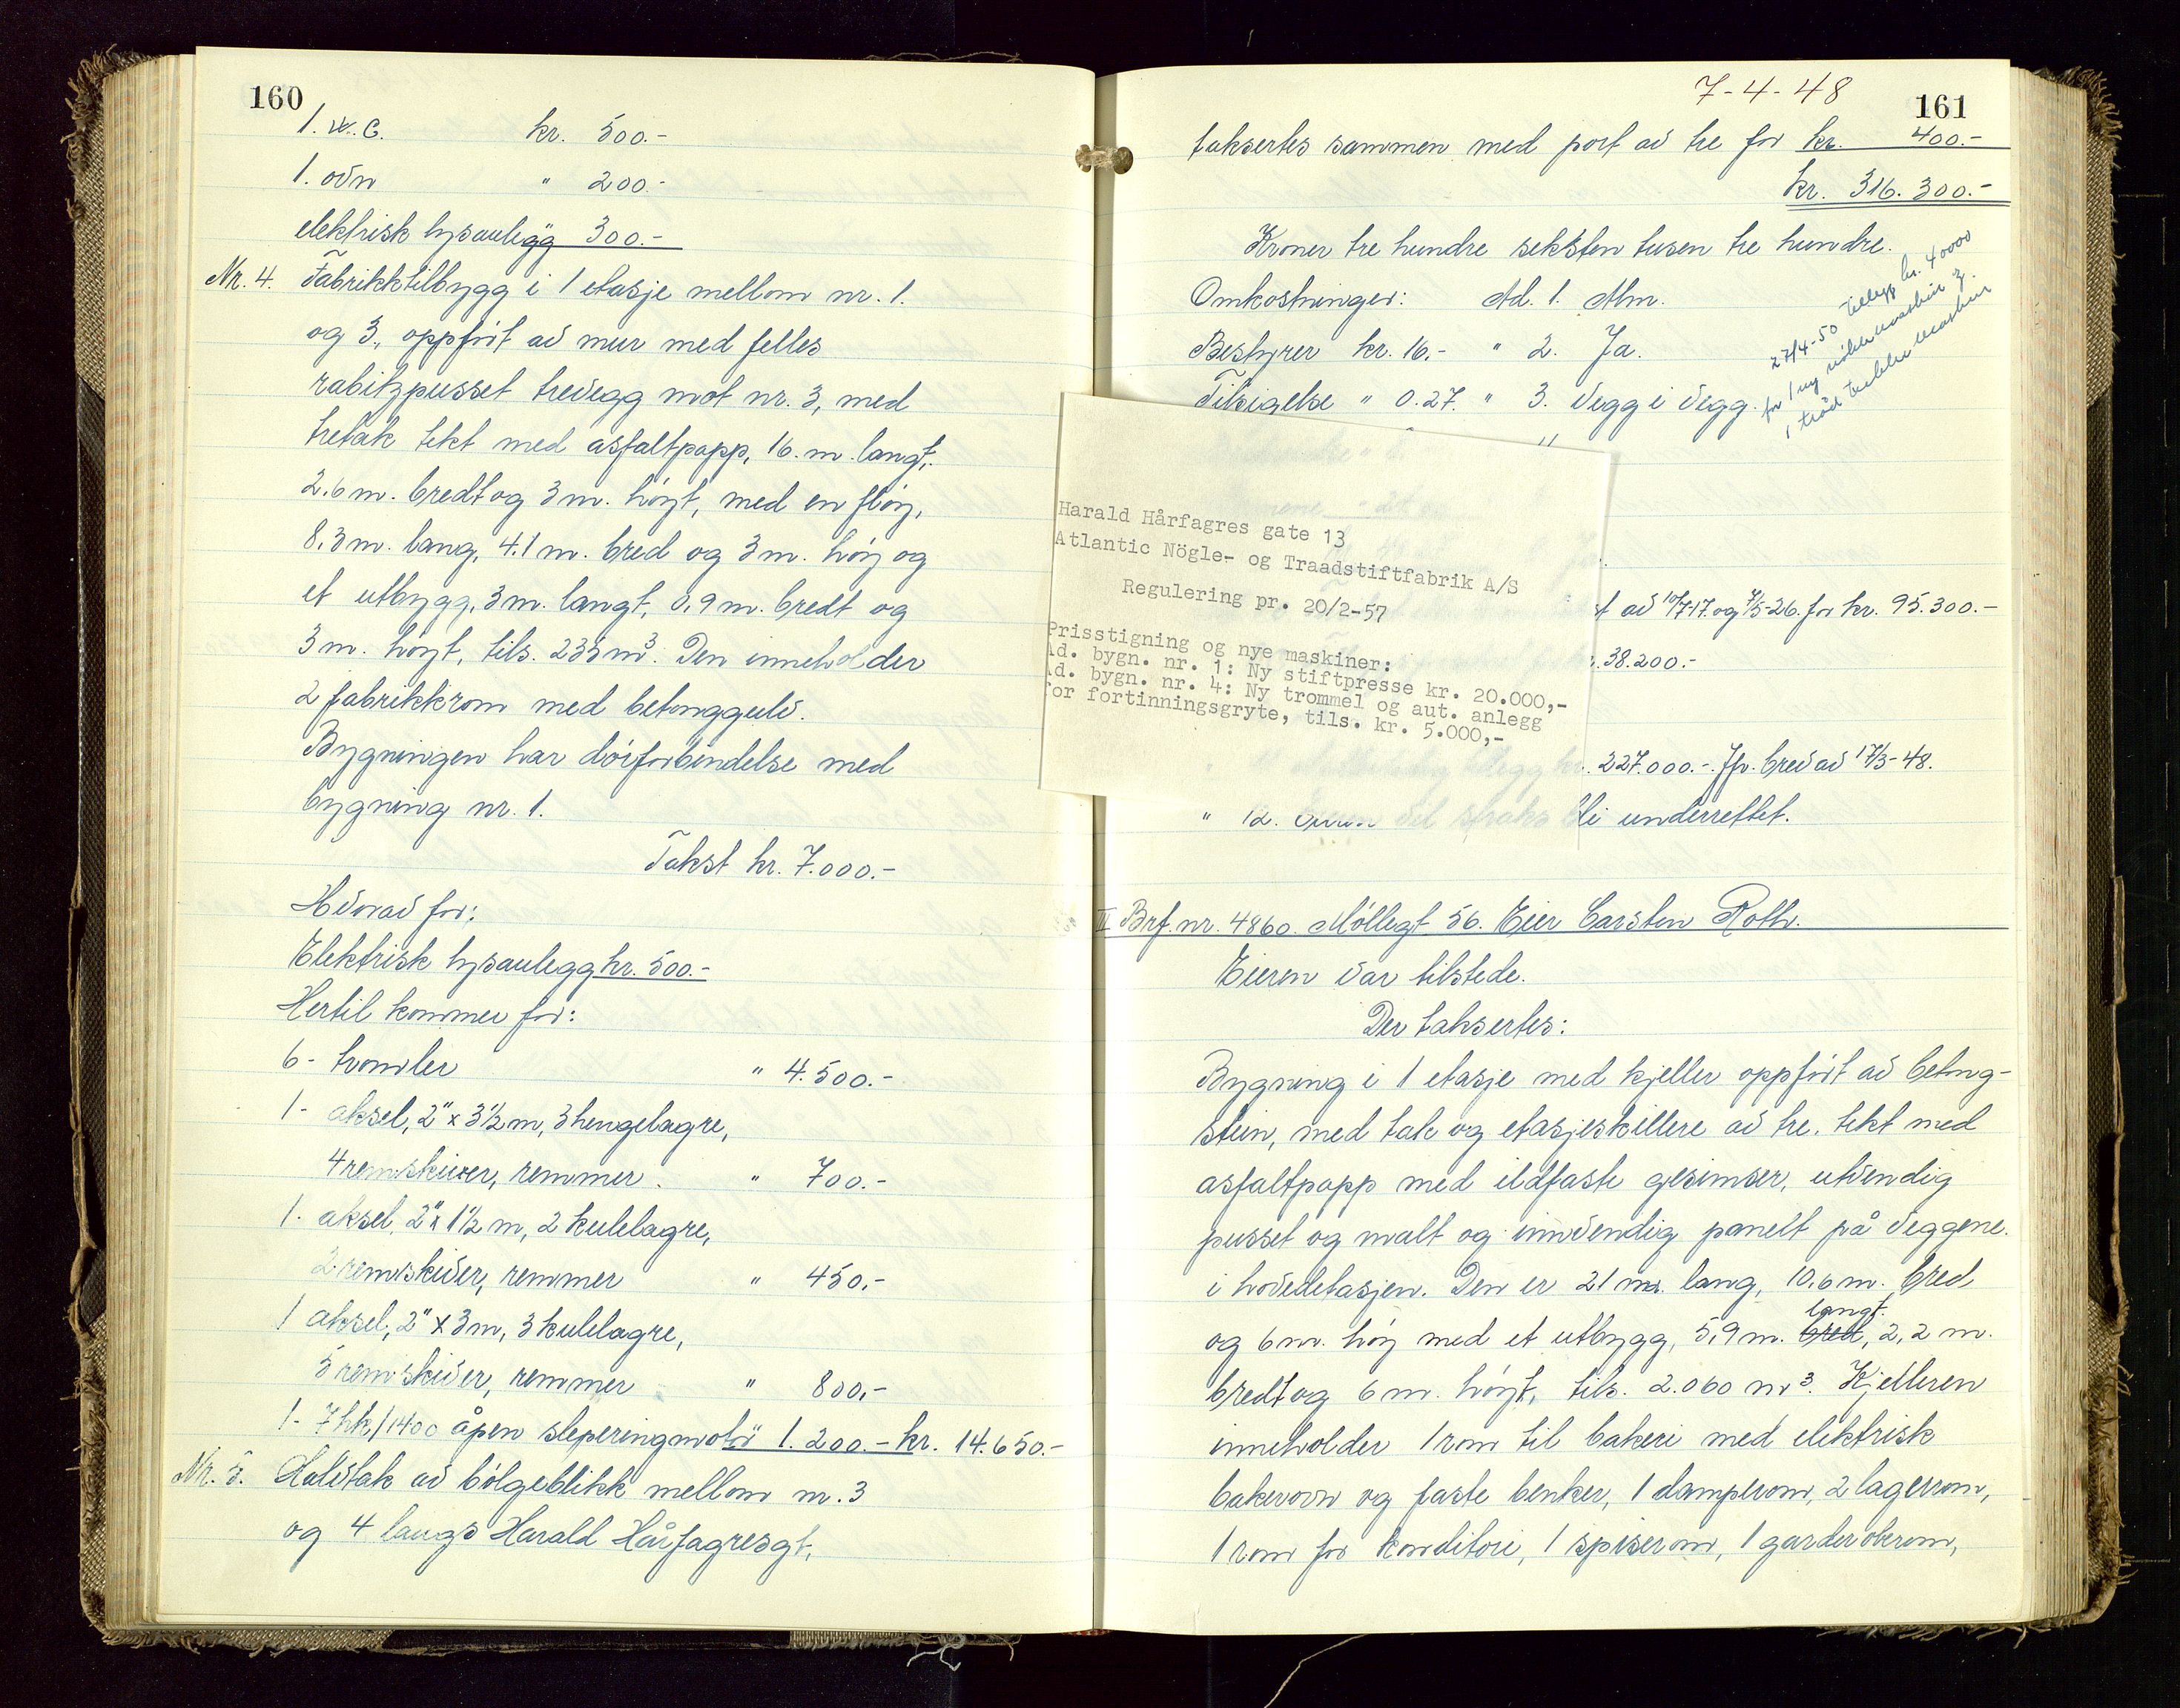 160
1. w.c. kr. 500.-
1. ovn " 200.-
elektrisk lysanlegg 300.-
Nr. 4. Fabrikktilbygg i 1 etasje mellom nr. 1.
og 3., oppført av mur med felles
rabitzpusset trevegg mot nr. 3, med
tretak tekt med asfaltpapp, 16. m. langt,
2.6 m. bredt og 3 m. høyt, med en fløy,
8.3 m. lang, 4.1 m. bred og 3 m. høy og
et utbygg, 3 m. langt, 0,9 m. bredt og
3 m. høyt, tils. 235 m³. Den inneholder
2 fabrikkrom med betonggulv.
Bygningen har dørforbindelse med
bygning nr. 1.
Takst kr. 7.000.-
Hvorav for:
Elektrisk lysanlegg kr. 500.-
Hertil kommer for:
6 - tromler " 4.500.-
1 - aksel, 2" x 3½ m, 3 hengelagre,
4 remskiver, remmer. " 700.-
1. aksel, 2" x 1½ m, 2 kulelagre,
2 remskiver, remmer " 450,-
1 aksel, 2" x 3 m, 3 kulelagre,
5 remskiver, remmer " 800,-
1 - 7 hk/1400 åpen sleperingmotor " 1.200.- kr. 14.650.-
Nr. 5. Halvtak av bølgeblikk mellom nr. 3
og 4 langs Harald Hårfagresgt,
7-4-48
161
taksertes sammen med port av tre for kr. 400.-
kr. 316.300.-
Kroner tre hundre seksten tusen tre hundre.
Omkostninger: Ad. 1. Alm.
Bestyrer kr. 16,- " 2. Ja.
Tilsigelse " 0.27. " 3. Vegg i vegg.
27/4-50 Tillegg kr. 40000
for 1 ny
1 tråd
Harald Hårfagres gate 13
Atlantic Nögle- og Traadstiftfabrik A/S
Regulering pr. 20/2-57
Prisstigning og nye maskiner:
Ad. bygn. nr. 1: Ny stiftpresse kr. 20.000,-
Ad. bygn. nr. 4: Ny trommel og aut. anlegg
for fortinningsgryte, tils. kr. 5.000,-
av 10/7-17. og 7/5-26. for kr. 95.300.-
38.200.-
227.000.-. Jfr. brev av 17/3-48.
" 12. vil straks bli underrettet.
II Brf. nr. 4860. Møllegt 56. Eier Carsten Roth.
Eieren var tilstede.
Der taksertes:
Bygning i 1 etasje med kjeller oppført av betong-
stein, med tak og etasjeskillere av tre, tekt med
asfaltpapp med ildfaste gesimser, utvendig
pusset og malt og innvendig panelt på veggene.
i hovedetasjen. Den er 21 m. lang, 10,6 m. bred
og 6 m. høy med et utbygg, 5,9 m. bred, langt. 2,2 m.
bredt og 6 m. høyt, tils. 2.060 m³. Kjelleren
inneholder 1 rom til bakeri med elektrisk
bakerovn og faste benker, 1 damperom, 2 lagerrom,
1 rom for konditori, 1 spiserom, 1 garderoberom,